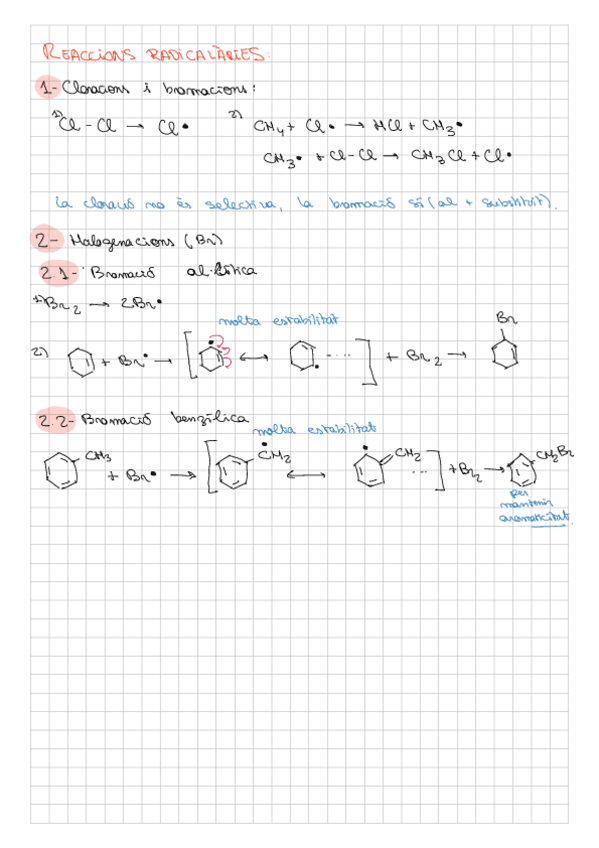 REACCIONS RADICALÀRIES:
1- Cloracions i bromacions:
1) Cl - Cl → Cl• 2) CH4 + Cl• → HCl + CH3•
CH3• + Cl-Cl → CH3Cl + Cl•
La cloració no és selectiva, la bromació sí (al + substituït).
2- Halogenacions (Br)
2.1- Bromació al·lílica
1) Br2 → 2Br•
molta estabilitat
Br
2) + Br• → [ ↔ .... ] + Br2 →
2.2- Bromació benzílica
molta estabilitat
CH3 + Br• → [ •CH2 ↔ CH2 ... ] + Br2 → CH2Br
per
mantenir
aromaticitat.